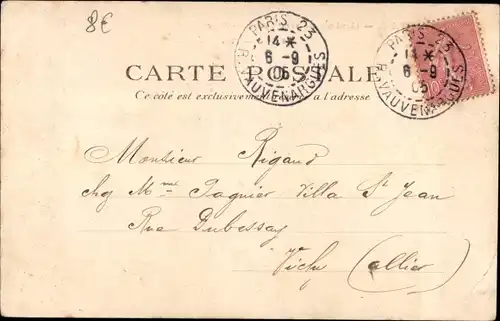 8€
PARIS 23
14 *
6 - 9
05
R. VAUVENARGUES
PARIS 23
14 *
6 - 9
05
R. VAUVENARGUES
CARTE POSTALE
Ce côté est exclusivement a l'adresse
Monsieur Rigaud
chez Mme Pagnier Villa St Jean
Rue Dubessay
Vichy (allier)